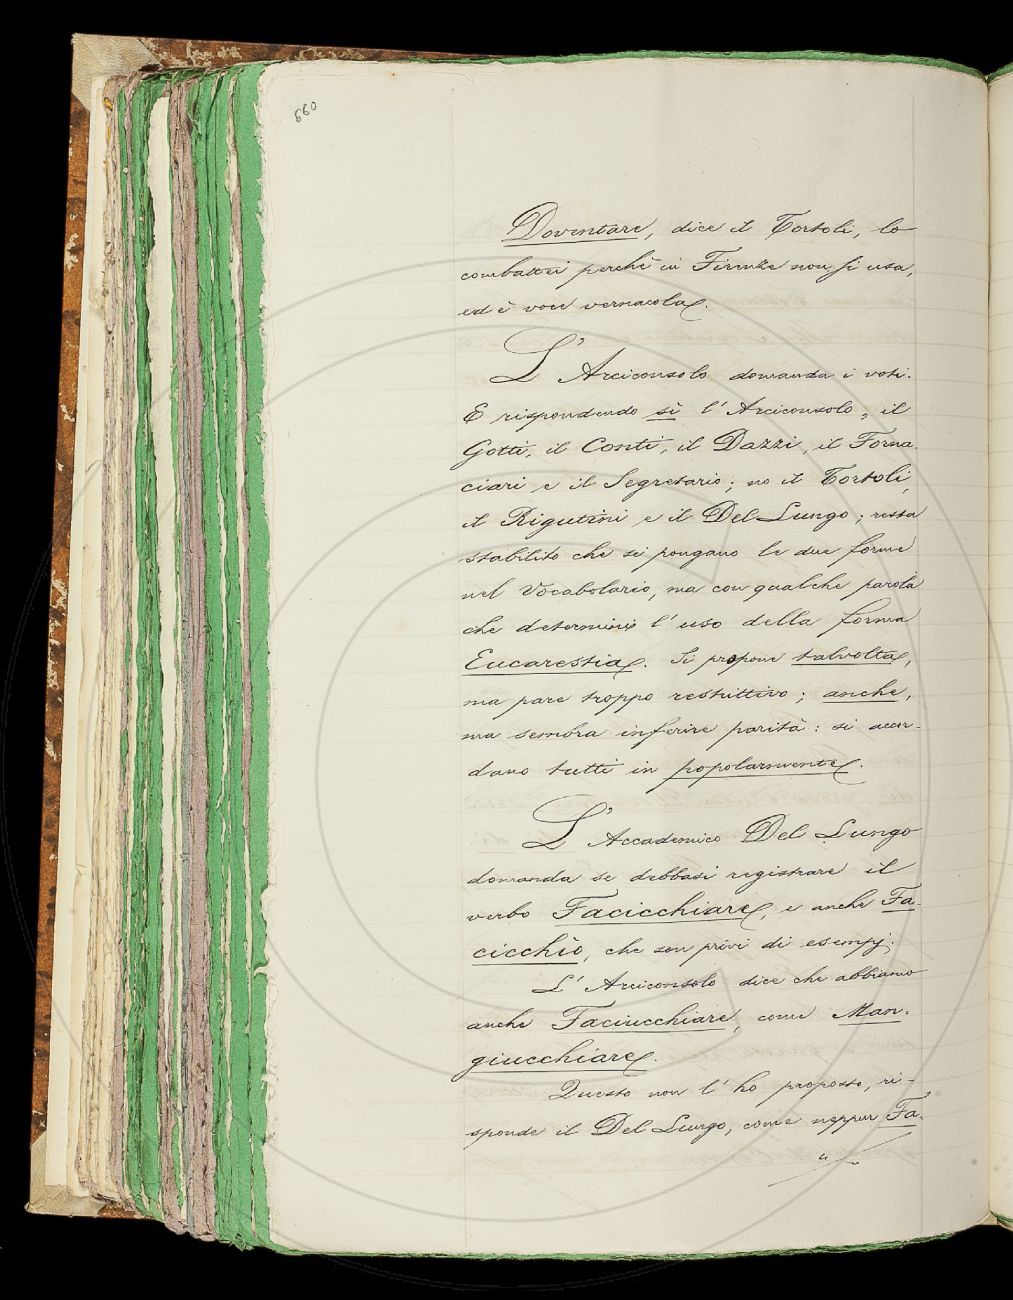 660
Doventare, dice il Tortoli, lo
combattei perchè in Firenze non si usa,
ed è voce vernacola.
L'Arciconsolo domanda i voti.
E rispondendo sì l'Arciconsolo, il
Gotti, il Conti, il Dazzi, il Forna-
ciari e il Segretario; no il Tortoli,
il Rigutini e il Del Lungo; resta
stabilito che si pongano le due forme
nel Vocabolario, ma con qualche parola
che determini l'uso della forma
Eucarestia. Si propone talvolta,
ma pare troppo restrittivo; anche,
ma sembra inferire parità: si accor-
dano tutti in popolarmente.
L'Accademico Del Lungo
domanda se debbasi registrare il
verbo Facicchiare, e anche Fa-
cicchìo, che son privi di esempj.
L'Arciconsolo dice che abbiamo
anche Faciucchiare, come Man-
giucchiare.
Questo non l'ho proposto, ri-
sponde il Del Lungo, come neppur Fa-